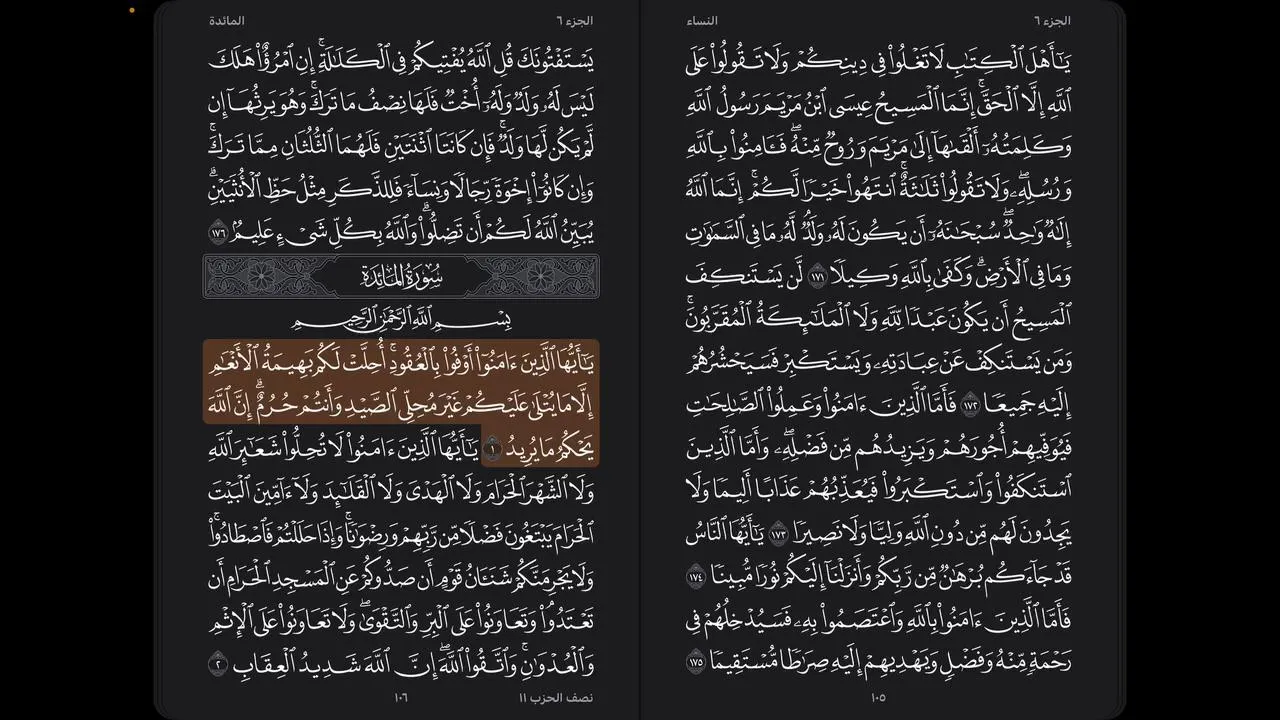 الجزء ٦
النساء
يَـٰٓأَهۡلَ ٱلۡكِتَـٰبِ لَا تَغۡلُواْ فِي دِينِكُمۡ وَلَا تَقُولُواْ عَلَى
ٱللَّهِ إِلَّا ٱلۡحَقَّۚ إِنَّمَا ٱلۡمَسِيحُ عِيسَى ٱبۡنُ مَرۡيَمَ رَسُولُ ٱللَّهِ
وَكَلِمَتُهُۥٓ أَلۡقَىٰهَآ إِلَىٰ مَرۡيَمَ وَرُوحٞ مِّنۡهُۖ فَـَٔامِنُواْ بِٱللَّهِ
وَرُسُلِهِۦۖ وَلَا تَقُولُواْ ثَلَـٰثَةٌۚ ٱنتَهُواْ خَيۡرٗا لَّكُمۡۚ إِنَّمَا ٱللَّهُ
إِلَـٰهٞ وَٰحِدٞۖ سُبۡحَـٰنَهُۥٓ أَن يَكُونَ لَهُۥ وَلَدٞۘ لَّهُۥ مَا فِي ٱلسَّمَـٰوَٰتِ
وَمَا فِي ٱلۡأَرۡضِۗ وَكَفَىٰ بِٱللَّهِ وَكِيلٗا ١٧١ لَّن يَسۡتَنكِفَ
ٱلۡمَسِيحُ أَن يَكُونَ عَبۡدٗا لِّلَّهِ وَلَا ٱلۡمَلَـٰٓئِكَةُ ٱلۡمُقَرَّبُونَۚ
وَمَن يَسۡتَنكِفۡ عَنۡ عِبَادَتِهِۦ وَيَسۡتَكۡبِرۡ فَسَيَحۡشُرُهُمۡ
إِلَيۡهِ جَمِيعٗا ١٧٢ فَأَمَّا ٱلَّذِينَ ءَامَنُواْ وَعَمِلُواْ ٱلصَّـٰلِحَـٰتِ
فَيُوَفِّيهِمۡ أُجُورَهُمۡ وَيَزِيدُهُم مِّن فَضۡلِهِۦۖ وَأَمَّا ٱلَّذِينَ
ٱسۡتَنكَفُواْ وَٱسۡتَكۡبَرُواْ فَيُعَذِّبُهُمۡ عَذَابًا أَلِيمٗا وَلَا
يَجِدُونَ لَهُم مِّن دُونِ ٱللَّهِ وَلِيّٗا وَلَا نَصِيرٗا ١٧٣ يَـٰٓأَيُّهَا ٱلنَّاسُ
قَدۡ جَآءَكُم بُرۡهَـٰنٞ مِّن رَّبِّكُمۡ وَأَنزَلۡنَآ إِلَيۡكُمۡ نُورٗا مُّبِينٗا ١٧٤
فَأَمَّا ٱلَّذِينَ ءَامَنُواْ بِٱللَّهِ وَٱعۡتَصَمُواْ بِهِۦ فَسَيُدۡخِلُهُمۡ فِي
رَحۡمَةٖ مِّنۡهُ وَفَضۡلٖ وَيَهۡدِيهِمۡ إِلَيۡهِ صِرَٰطٗا مُّسۡتَقِيمٗا ١٧٥
١٠٥
الجزء ٦
المائدة
يَسۡتَفۡتُونَكَ قُلِ ٱللَّهُ يُفۡتِيكُمۡ فِي ٱلۡكَلَـٰلَةِۚ إِنِ ٱمۡرُؤٌاْ هَلَكَ
لَيۡسَ لَهُۥ وَلَدٞ وَلَهُۥٓ أُخۡتٞ فَلَهَا نِصۡفُ مَا تَرَكَۚ وَهُوَ يَرِثُهَآ إِن
لَّمۡ يَكُن لَّهَا وَلَدٞۚ فَإِن كَانَتَا ٱثۡنَتَيۡنِ فَلَهُمَا ٱلثُّلُثَانِ مِمَّا تَرَكَۚ
وَإِن كَانُوٓاْ إِخۡوَةٗ رِّجَالٗا وَنِسَآءٗ فَلِلذَّكَرِ مِثۡلُ حَظِّ ٱلۡأُنثَيَيۡنِۗ
يُبَيِّنُ ٱللَّهُ لَكُمۡ أَن تَضِلُّواْۗ وَٱللَّهُ بِكُلِّ شَيۡءٍ عَلِيمُۢ ١٧٦
سُورَةُ المَائِدَةِ
بِسۡمِ ٱللَّهِ ٱلرَّحۡمَـٰنِ ٱلرَّحِيمِ
يَـٰٓأَيُّهَا ٱلَّذِينَ ءَامَنُوٓاْ أَوۡفُواْ بِٱلۡعُقُودِۚ أُحِلَّتۡ لَكُم بَهِيمَةُ ٱلۡأَنۡعَـٰمِ
إِلَّا مَا يُتۡلَىٰ عَلَيۡكُمۡ غَيۡرَ مُحِلِّي ٱلصَّيۡدِ وَأَنتُمۡ حُرُمٌۗ إِنَّ ٱللَّهَ
يَحۡكُمُ مَا يُرِيدُ ١ يَـٰٓأَيُّهَا ٱلَّذِينَ ءَامَنُواْ لَا تُحِلُّواْ شَعَـٰٓئِرَ ٱللَّهِ
وَلَا ٱلشَّهۡرَ ٱلۡحَرَامَ وَلَا ٱلۡهَدۡيَ وَلَا ٱلۡقَلَـٰٓئِدَ وَلَآ ءَآمِّينَ ٱلۡبَيۡتَ
ٱلۡحَرَامَ يَبۡتَغُونَ فَضۡلٗا مِّن رَّبِّهِمۡ وَرِضۡوَٰنٗاۚ وَإِذَا حَلَلۡتُمۡ فَٱصۡطَادُواْۚ
وَلَا يَجۡرِمَنَّكُمۡ شَنَـَٔانُ قَوۡمٍ أَن صَدُّوكُمۡ عَنِ ٱلۡمَسۡجِدِ ٱلۡحَرَامِ أَن
تَعۡتَدُواْۘ وَتَعَاوَنُواْ عَلَى ٱلۡبِرِّ وَٱلتَّقۡوَىٰۖ وَلَا تَعَاوَنُواْ عَلَى ٱلۡإِثۡمِ
وَٱلۡعُدۡوَٰنِۚ وَٱتَّقُواْ ٱللَّهَۖ إِنَّ ٱللَّهَ شَدِيدُ ٱلۡعِقَابِ ٢
نصف الحزب ١١
١٠٦